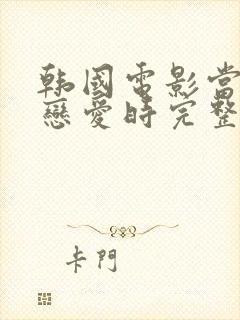 韩國電影當
戀愛時完整
卡門